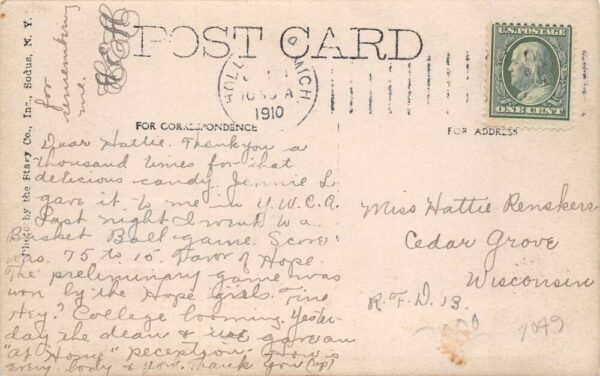 POST CARD
U.S. POSTAGE
ONE CENT
HOLL D MICH
10 30 A
1910
FOR CORRESPONDENCE
FOR ADDRESS
Photo by the Stary Co., Inc., Sodus, N. Y.
for
remembering
me.
Dear Hattie. Thank you a
thousand times for that
delicious candy. Jennie L.
gave it to me in Y.W.C.A.
Last night I went to a
Basket Ball game. Score
was. 75 to 15. Favor of Hope.
The preliminary game was
won by the Hope girls. Fine
Hey? College booming. Yester-
day the dean & gave an
"At Home" reception. How is
every body & You. Thank You (up)
Miss Hattie Renskers
Cedar Grove
Wisconsin
R.F.D. 13.
7049